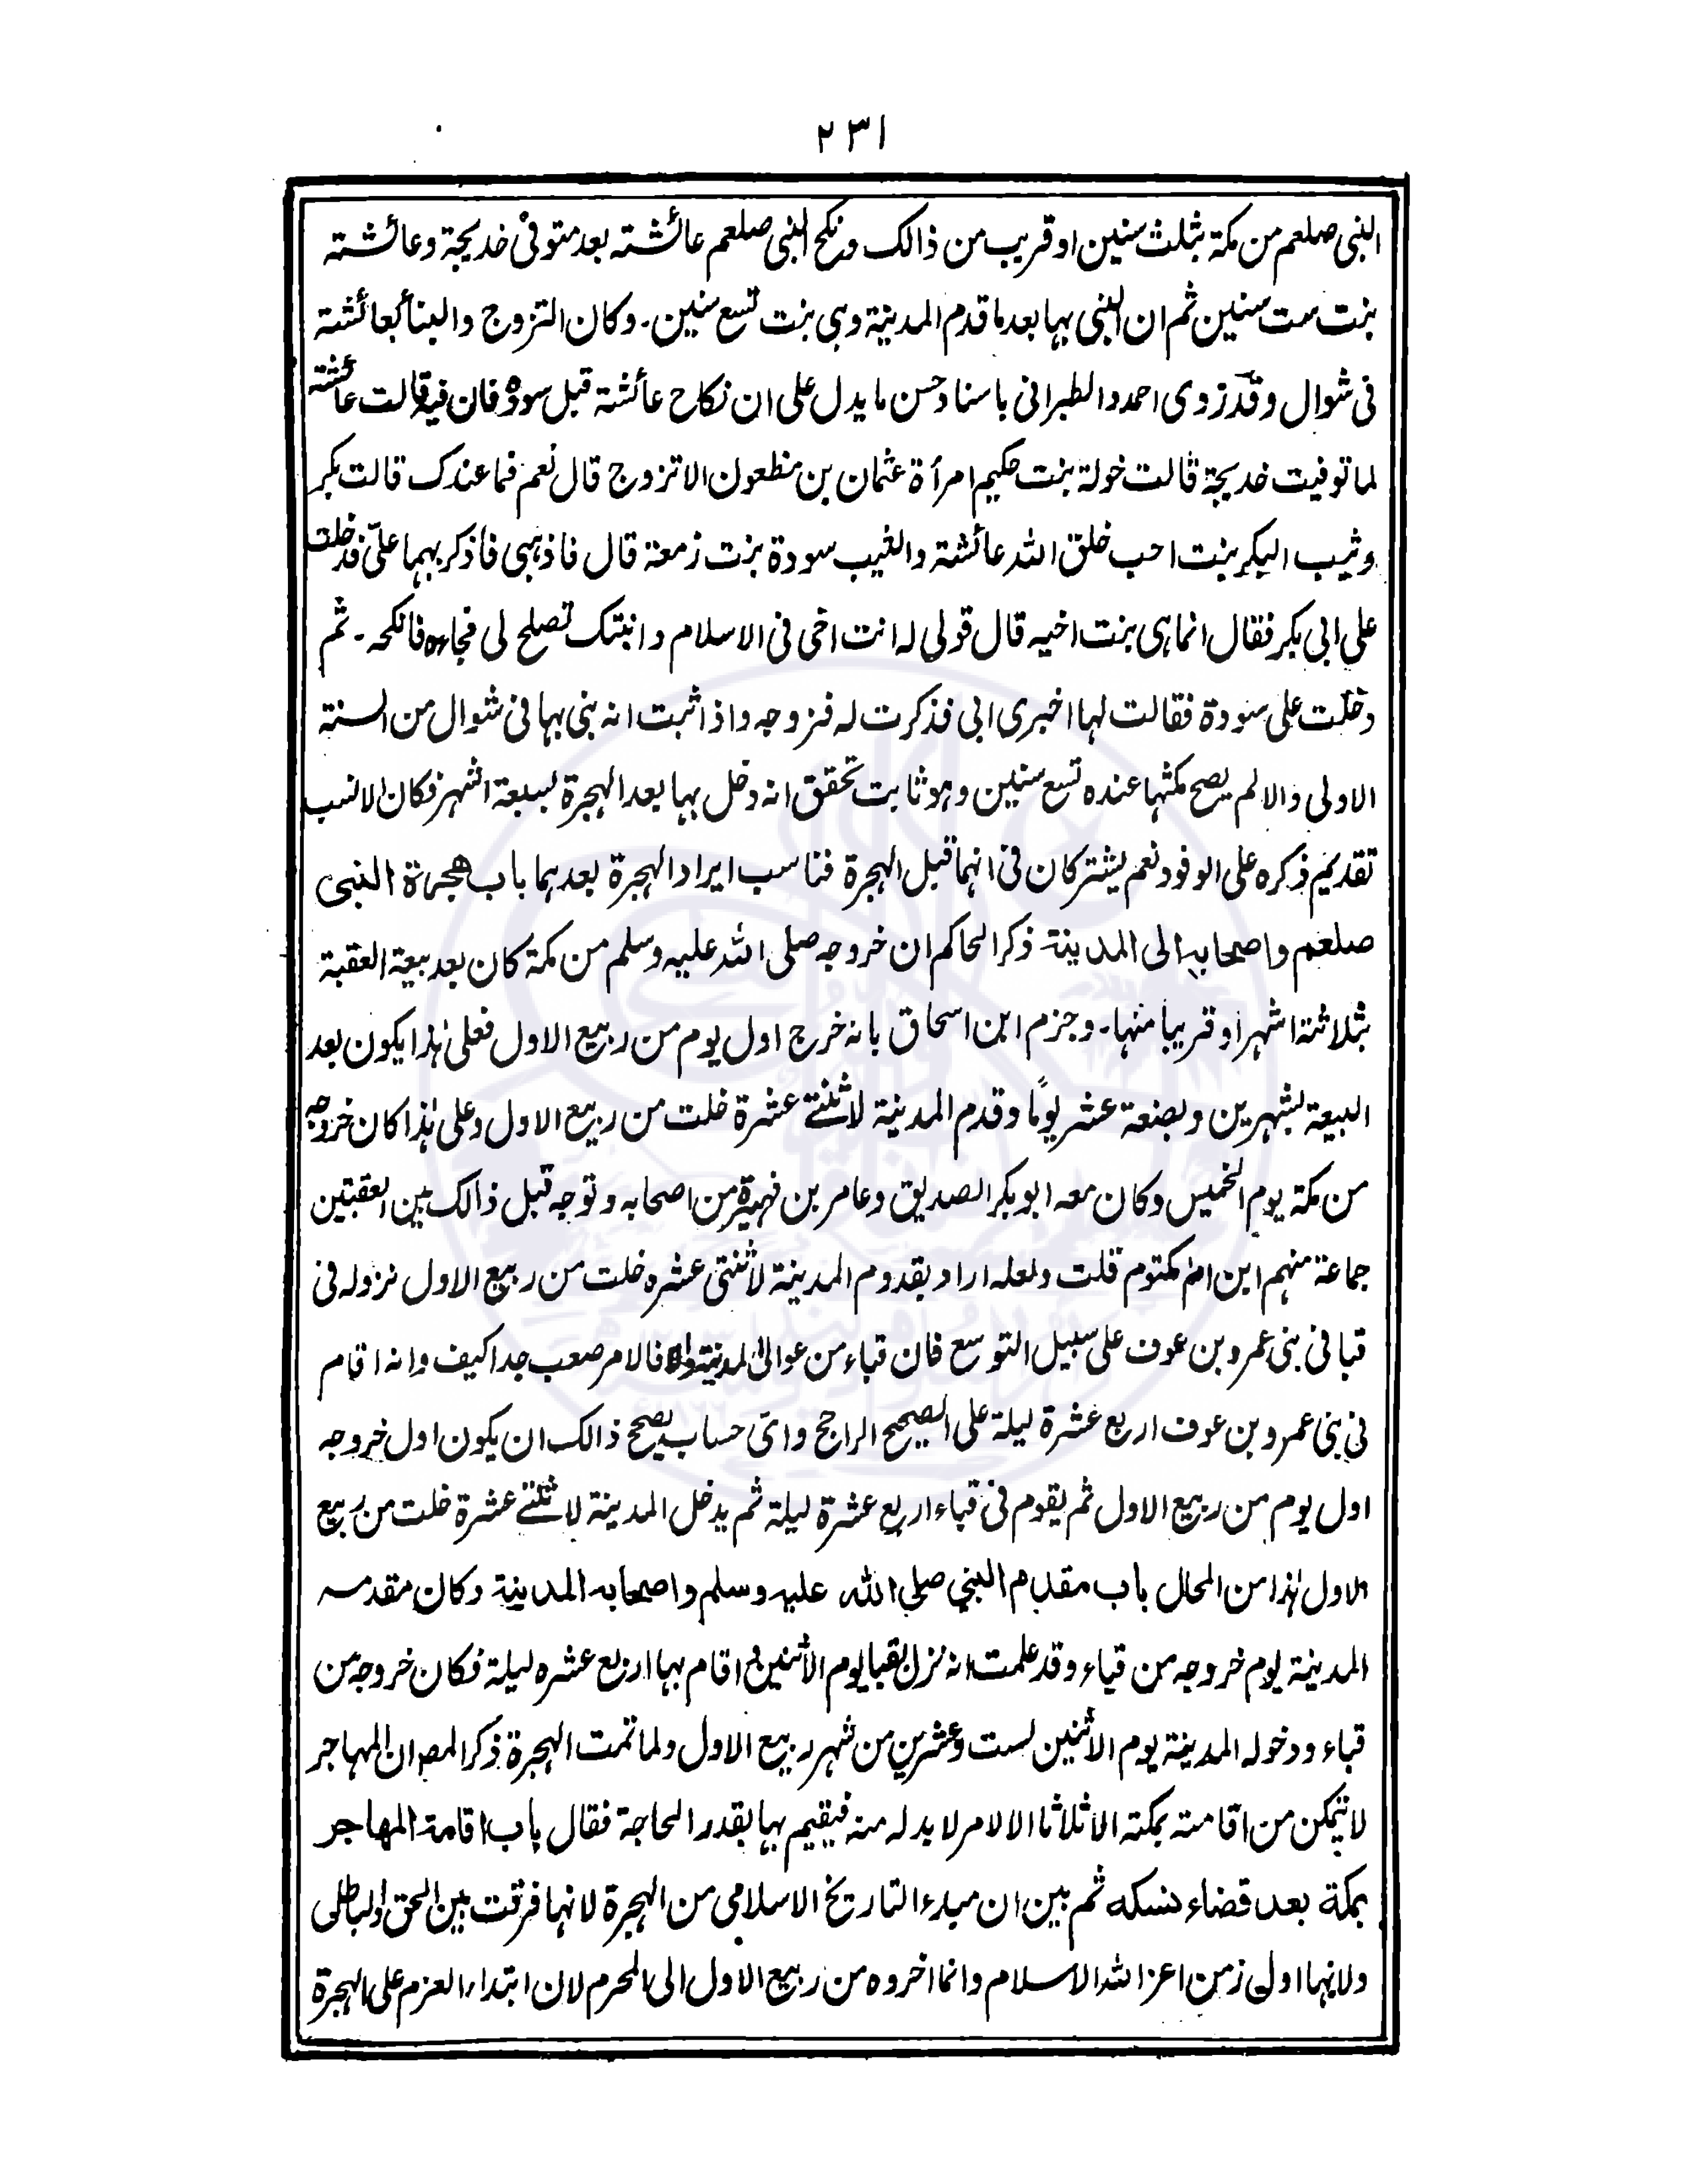 ٢٣١
النبى صلعم من مكة بثلث سنين او قريب من ذالك ونكح النبى صلعم عائشته بعد متوفى خديجة وعائشته
بنت ست سنين ثم ان النبى بها بعد ما قدم المدينة وهى بنت تسع سنين۔ وكان التزوج والبنا بعائشتة
فى شوال وقد روى احمد والطبرانى باسناد حسن ما يدل على ان نكاح عائشة قبل سودة فان فيه قالت عائشتة
لما توفيت خديجة قالت خولة بنت حكيم امرأة عثمان بن مظعون الا تزوج قال نعم فما عندك قالت بكر
وثيب البكر بنت احب خلق الله عائشتة والثيب سودة بنت زمعة قال فاذهبى فاذكر بهما علىّ فدخلت
على ابى بكر فقال انما هى بنت اخيه قال قولى له انت اخى فى الاسلام وابنتك تصلح لى فجاءه فانكحه۔ ثم
دخلت على سودة فقالت لها اخبرى ابى فذكرت له فزوجه واذا ثبت انه بنى بها فى شوال من السنة
الاولى والا لم يصح مكثها عنده تسع سنين وهو ثابت تحقق انه دخل بها بعد الهجرة لسبعة اشهر فكان الانسب
تقديم ذكره على الوفود نعم يشتركان فى انهما قبل الهجرة فناسب ايراد الهجرة بعدهما باب هجرة النبى
صلعم واصحابه الى المدينة ذكر الحاكم ان خروجه صلى الله عليه وسلم من مكة كان بعد بيعة العقبة
بثلاثة اشهر او قريبا منها۔ وجزم ابن اسحاق بانه خرج اول يوم من ربيع الاول فعلى هذا يكون بعد
البيعة بشهرين وبضعة عشر يومًا وقدم المدينة لاثنتے عشرة خلت من ربيع الاول وعلى هذا كان خروجه
من مكة يوم الخميس وكان معه ابو بكر الصديق وعامر بن فهيرة من اصحابه وتوجه قبل ذالك بين العقبتين
جماعة منهم ابن ام مكتوم قلت ولعله اراد بقدوم المدينة لاثنتى عشره خلت من ربيع الاول نزوله فى
قبا فى بنى عمرو بن عوف على سبيل التوسع فان قباء من عوالى المدينة والا فالامر صعب جدا كيف وانه اقام
فى بنى عمرو بن عوف اربع عشرة ليلة على الصحيح الراجح واىّ حساب يصحح ذالك ان يكون اول خروجه
اول يوم من ربيع الاول ثم يقوم فى قباء اربع عشرة ليلة ثم يدخل المدينة لاثنتے عشرة خلت من ربيع
الاول هذا من المحال باب مقدم النبي صلى الله عليه وسلم واصحابه المدينة وكان مقدمه
المدينة يوم خروجه من قباء وقد علمت انه نزل بقبا يوم الاثنين اقام بها اربع عشره ليلة فكان خروجه من
قباء ودخوله المدينة يوم الاثنين لست وعشرين من شهر ربيع الاول ولما تمت الهجرة ذكر المص ان المهاجر
لا يتمكن من اقامته بمكته الا ثلاثا الا لامر لا بد له منه فيقيم بها بقدر الحاجة فقال باب اقامة المهاجر
بمكة بعد قضاء نسكه ثم بين ان مبدء التاريخ الاسلامى من الهجرة لانها فرقت بين الحق والباطل
ولانها اول زمن اعز الله الاسلام وانما اخروه من ربيع الاول الى المحرم لان ابتداء العزم على الهجرة